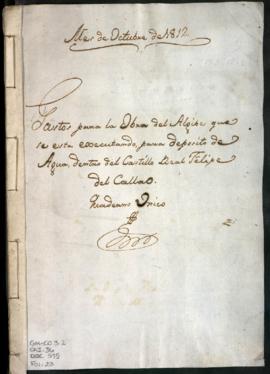 Mes de Octubre de 1812
Gastos para la Obra del Algibe que
se esta executando, para deposito de
Agua, dentro del Castillo Real Felipe
del Callao.
Quaderno Unico
GM-CO 3.2
CAJ. 36
DOC. 595
FOL. 23